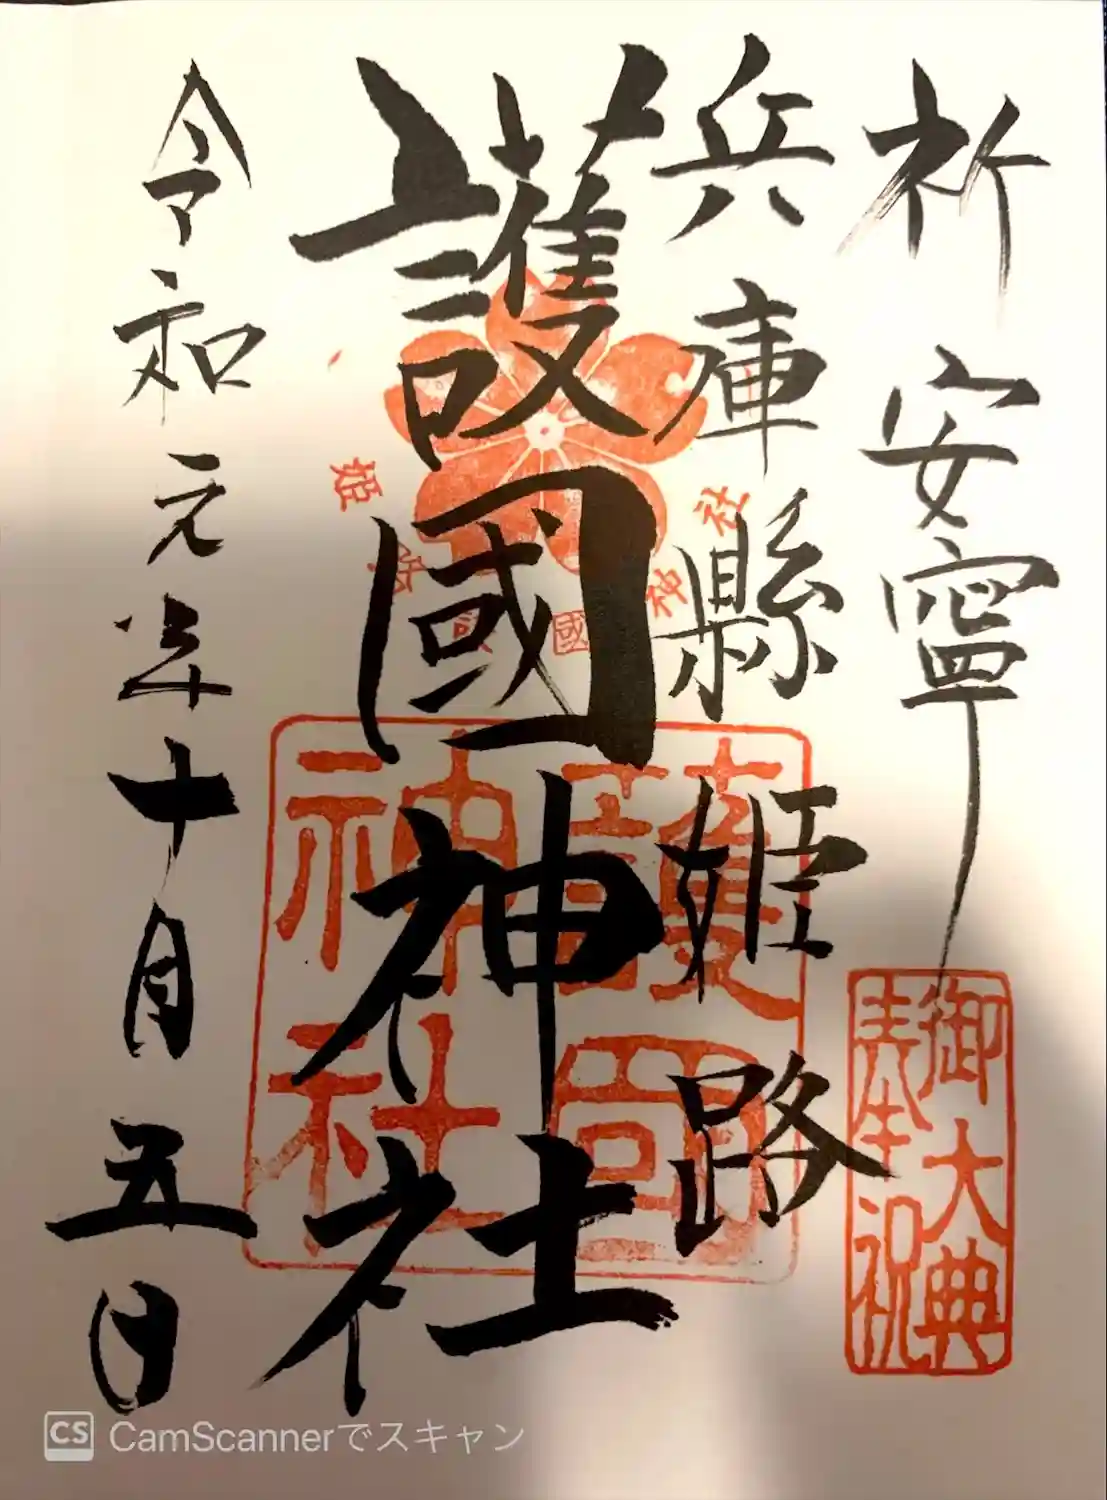 祈安寧
御大典
奉祝
兵庫縣姫路
護國神社
姫路護國神社
護国
神社
令和元年十月五日
CS CamScannerでスキャン